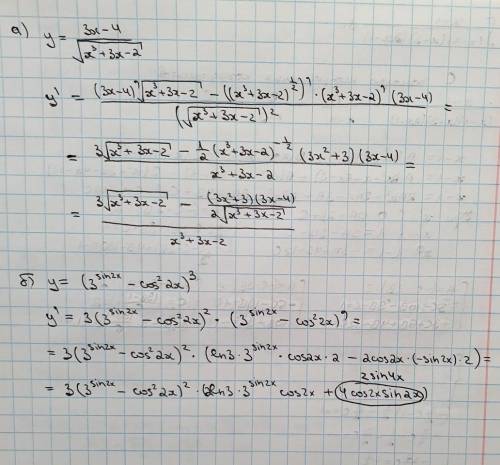 а) y = (3x-4)/√(x³+3x-2)
y' = ((3x-4)'√(x³+3x-2) - ((x³+3x-2)^(1/2))' · (x³+3x-2)' (3x-4))/(√(x³+3x-2))² =
= (3√(x³+3x-2) - 1/2 (x³+3x-2)^(-1/2) (3x²+3) (3x-4))/(x³+3x-2) =
= (3√(x³+3x-2) - ((3x²+3)(3x-4))/(2√(x³+3x-2)))/(x³+3x-2)
б) y = (3^(sin2x) - cos²2x)³
y' = 3(3^(sin2x) - cos²2x)² · (3^(sin2x) - cos²2x)' =
= 3(3^(sin2x) - cos²2x)² · (ln3·3^(sin2x) · cos2x · 2 - 2cos2x·(-sin2x)·2) =
2sin4x
= 3(3^(sin2x) - cos²2x)² · (2ln3·3^(sin2x) cos2x + 4cos2x sin2x)